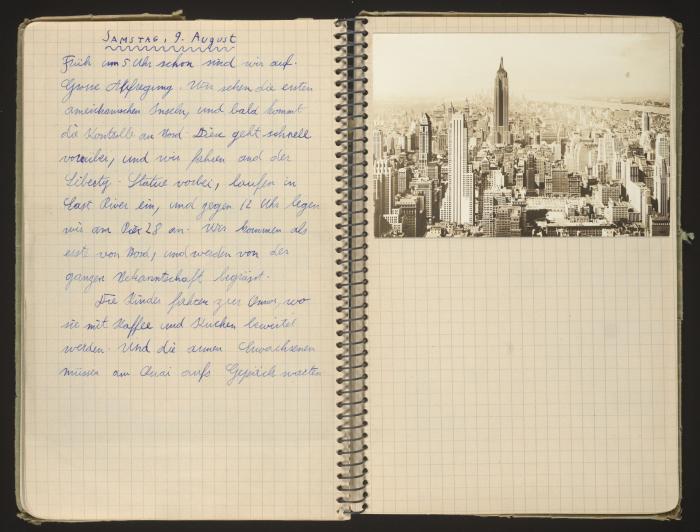 SAMSTAG, 9. AUGUST
Früh um 5 Uhr schon sind wir auf.
Grosse Aufregung. Wir sehen die ersten
amerikanischen Inseln, und bald kommt
die Kontrolle an Bord. Diese geht schnell
vorüber, und wir fahren and der
Liberty-Statue vorbei, laufen in
East River ein, und gegen 12 Uhr legen
wir am Pier 28 an. Wir kommen als
erste von Bord, und werden von der
ganzen Bekanntschaft begrüsst.
Die Kinder fahren zur Omus, wo
sie mit Kaffee und Kuchen bewirtet
werden. Und die armen Erwachsenen
müssen am Quai aufs Gepäck warten